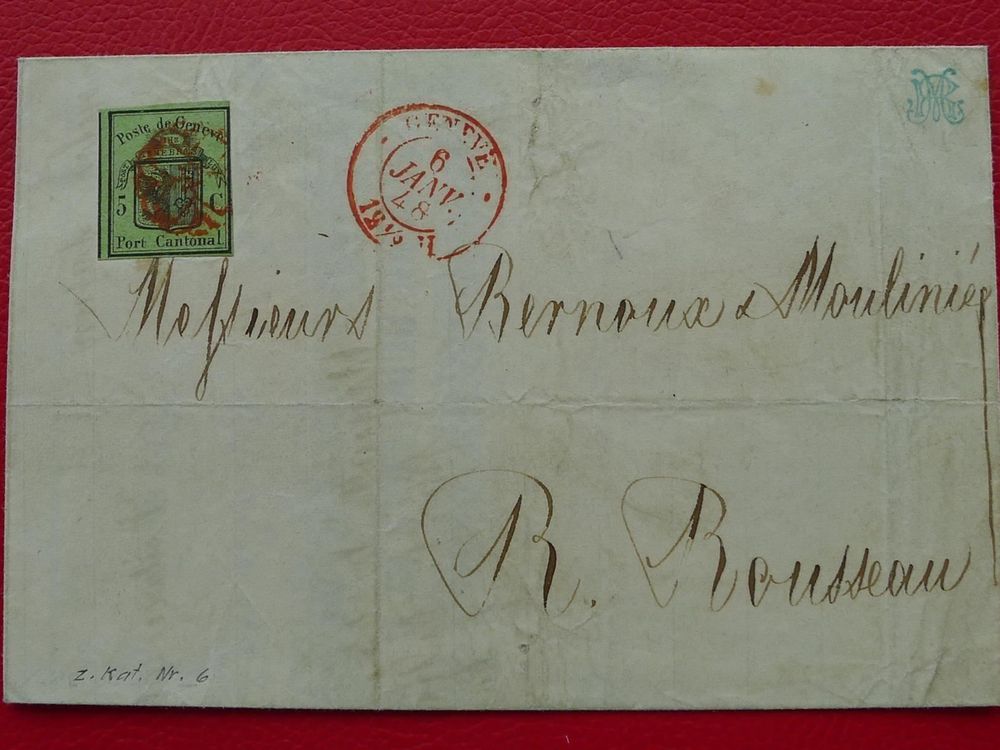 Poste de Genève
5 C
Port Cantonal
GENEVE
6
JANV.
48
Messieurs Bernoux & Moulinié
R. Rousseau
Z. Kat. Nr. 6